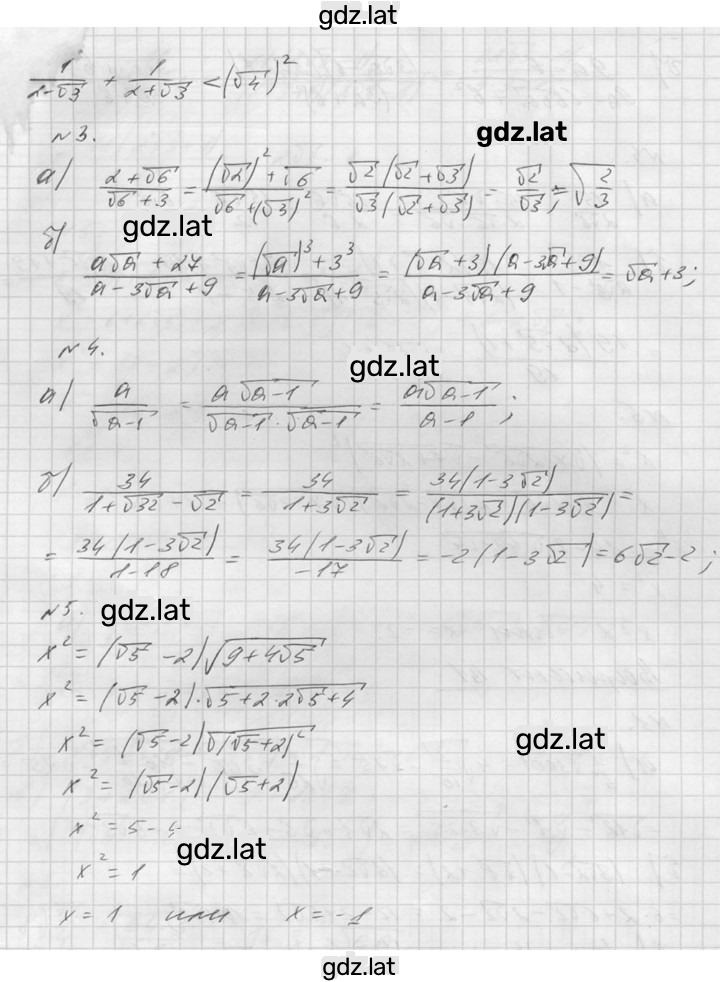 gdz.lat
1/(2-√3) + 1/(2+√3) < (√4)²
№3.
gdz.lat
а) (2+√6)/(√6+3) = ((√2)²+√6)/(√6+(√3)²) = (√2(√2+√3))/(√3(√2+√3)) = √2/√3 = √(2/3);
gdz.lat
б) (a√a+27)/(a-3√a+9) = ((√a)³+3³)/(a-3√a+9) = ((√a+3)(a-3√a+9))/(a-3√a+9) = √a+3;
№4.
gdz.lat
а) a/√(a-1) = (a√(a-1))/(√(a-1)·√(a-1)) = (a√(a-1))/(a-1);
б) 34/(1+√32-√2) = 34/(1+3√2) = (34(1-3√2))/((1+3√2)(1-3√2)) =
= (34(1-3√2))/(1-18) = (34(1-3√2))/(-17) = -2(1-3√2) = 6√2-2;
№5.
gdz.lat
x² = (√5-2)√(9+4√5)
x² = (√5-2)·√(5+2·2√5+4)
x² = (√5-2)√((√5+2)²)
gdz.lat
x² = (√5-2)(√5+2)
x² = 5-4
gdz.lat
x² = 1
x = 1 или x = -1
gdz.lat